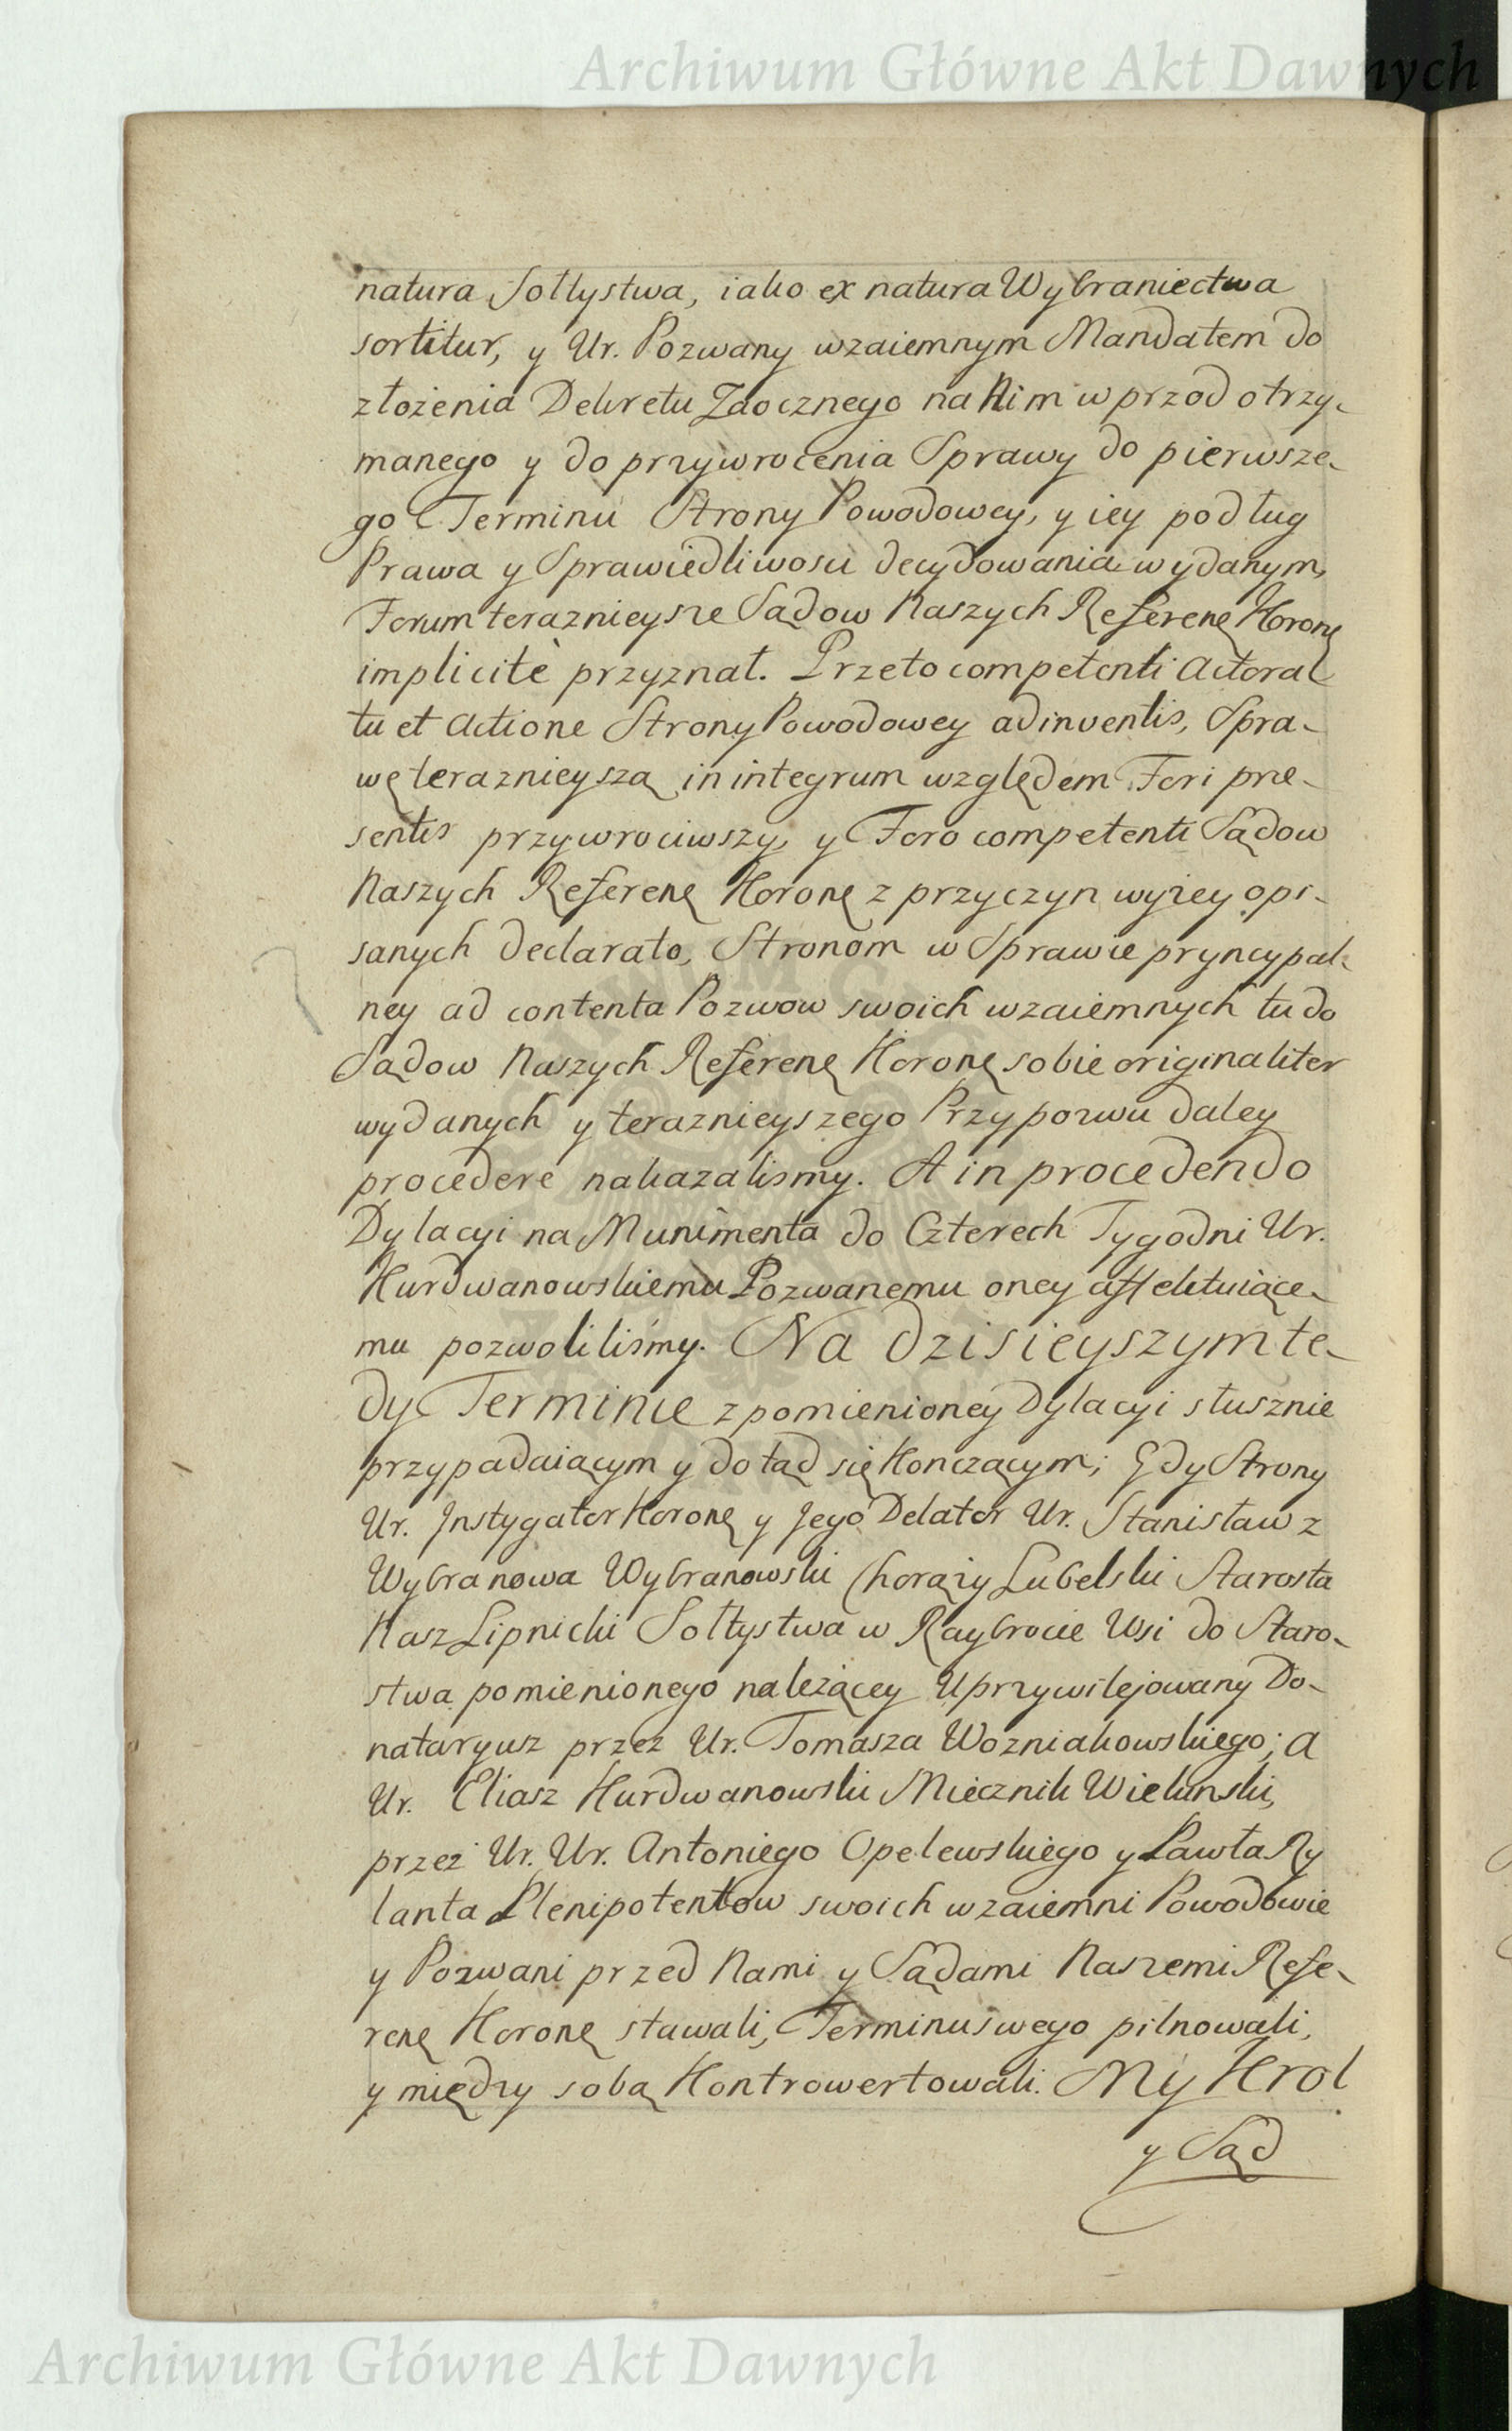 Archiwum Główne Akt Dawnych
natura Sołtystwa, iako ex natura Wybraniectwa
sortitur, y Ur. Pozwany wzaiemnym Mandatem do
złożenia Dekretu Zaocznego na Nim w przod otrzy-
manego y do przywrocenia Sprawy do pierwsze-
go Terminu Strony Powodowey, y iey podług
Prawa y Sprawiedliwosci decydowania wydanym,
Forum teraznieysze Sądow Naszych Referenę Koronę
implicitè przyznał. Przeto competenti Actoral
tu et Actione Strony Powodowey adinventis, Spra-
wę teraznieyszą in integrum względem Fori prae-
sentis przywrociwszy, y Foro competenti Sądow
Naszych Referenę Koronę z przyczyn wyżey opi-
sanych declarato, Stronom w Sprawie pryncypal-
ney ad contenta Pozwow swoich wzaiemnych tu do
Sądow Naszych Referenę Koronę sobie originaliter
wydanych y teraznieyszego Przypozwu daley
procedere nakazalismy. A in procedendo
Dylacyi na Munimenta do Czterech Tygodni Ur.
Hurdwanowskiemu Pozwanemu oney affektuiące-
mu pozwoliliśmy. Na dzisieyszym te-
dy Terminie z pomienioney Dylacyi słusznie
przypadaiącym y dotąd się kończącym; Gdy Strony
Ur. Instygator Koronę y Jego Delator Ur. Stanisław z
Wybranowa Wybranowski Chorąży Lubelski Starosta
Nasz Lipnicki Sołtystwa w Raybrocie Wsi do Staro-
stwa pomienionego należącey Uprzywilejowany Do-
nataryusz przez Ur. Tomasza Wozniakowskiego; a
Ur. Eliasz Hurdwanowski Miecznik Wielunski,
przez Ur. Ur. Antoniego Opelewskiego y Pawła Ry
lanta Plenipotentow swoich wzaiemni Powodowie
y Pozwani przed Nami y Sądami Naszemi Refe-
renę Koronę stawali, Terminu swego pilnowali,
y między sobą Kontrowertowali. My Krol
y Sąd
Archiwum Główne Akt Dawnych